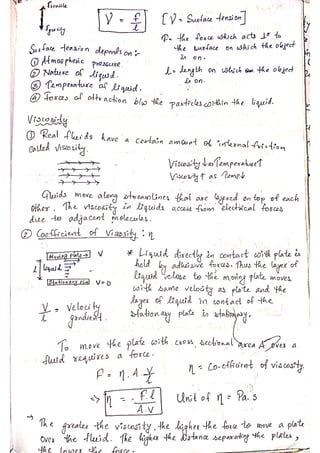 V = f/l
[V - Surface tension]
F - the force which acts 1ᵉ to
the surface on which the object
is on.
l - length on which on the object
is on.
Surface tension depends on :-
① Atmospheric pressure.
② Nature of liquid.
③ Temperature of liquid.
④ Forces of attraction b/w the particles within the liquid.
Viscosity
① Real fluids have a certain amount of internal friction
called viscosity.
Viscosity ↓ as Temperature ↑
Viscosity ↑ as Temp ↓
Fluids move along streamlines that are layered on top of each
other. The viscosity in liquids access from electrical forces
due to adjacent molecules.
② Coefficient of Viscosity : η
Moving plate → V
l liquid
Stationary plate V=0
* Liquid directly in contact with plate is
held by adhesive forces. Thus the layer of
liquid close to the moving plate moves
with same velocity as plate and the
layer of liquid in contact of the
stationary plate is stationary.
V/l = Velocity
gradient.
To move the plate with cross sectional area A over a
fluid requires a force.
F = η.A.V/l
η = Co-efficient of viscosity.
=> η = F.l/A.V
Unit of η = Pa.s
→ The greater the viscosity, the higher the force to move a plate
over the fluid. The higher the distance separating the plates,
the lower the force.